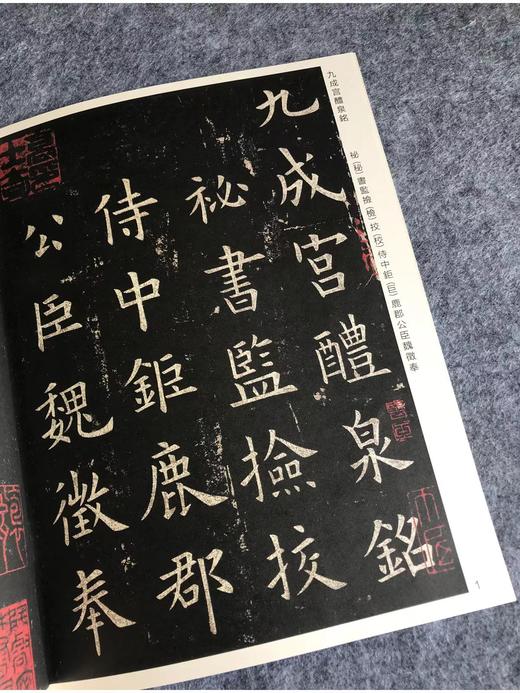 九成宮醴泉銘
祕書監撿挍
侍中鉅鹿郡
公臣魏徵奉
九成宫醴泉銘
祕(秘)書監撿(檢)挍(校)侍中鉅(巨)鹿郡公臣魏徵奉
1